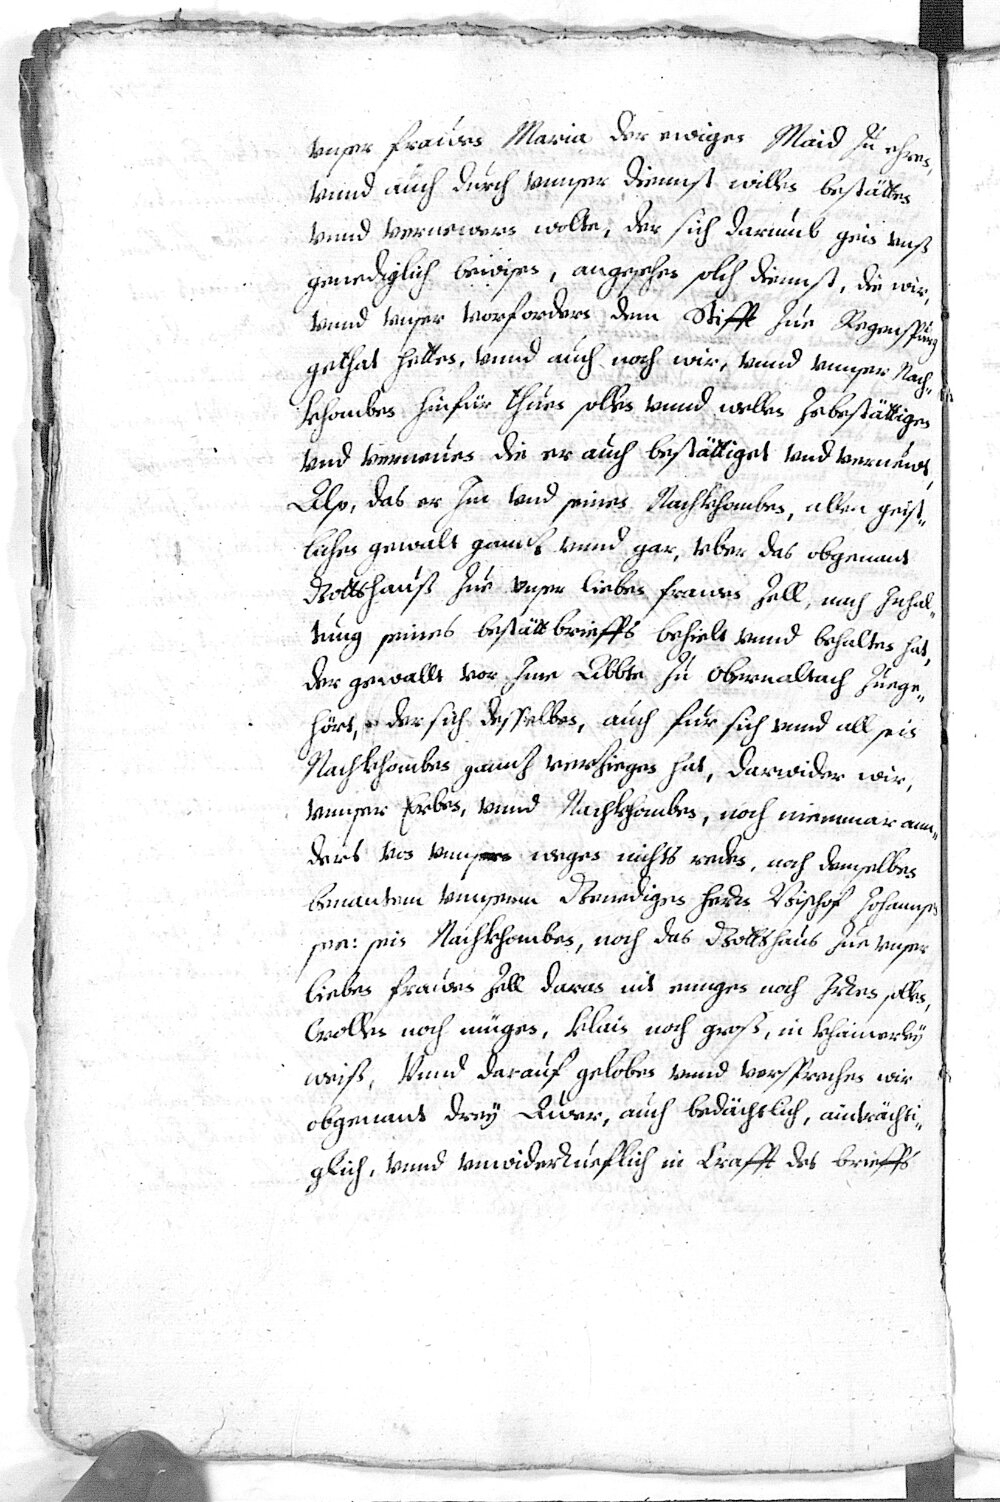 vnser frauen Maria der ewigen Maid zu ehren,
vnnd auch durch vnnser diennst willen bestätten
vnnd vernewern wolte, der sich darumb gein vnß
genediglich bewisen, angesehen solch diennst, die wir,
vnnd vnser vorfordern dem Stifft zue Regenspurg
gethat hetten, vnnd auch noch wir, vnnd vnnser Nach-
khomben hinfür thuen sollen vnnd wellen zebestättigen
vnd verneuen die er auch bestättiget vnd verneuet,
Also, das er Im vnd seinen Nachkhomben, allen geist-
lichen gewalt gannz vnnd gar, vber das obgenant
Gottshauß zue vnser lieben frauen Zell, nach Inhal-
tung seines bestätt brieffs behielt vnnd behalten hat,
der gewallt vor Ime Abbte zu Obernaltach zuege-
hört, der sich desselben, auch für sich vnnd all sein
Nachkhomben gannz verzigen hat, darwider wir,
vnnser Erben, vnnd Nachkhomben, noch niemmar ann-
ders von vnnsern wegen nichts reden, noch demselben
benantem vnnserm Genedigen herrn Bischof Johannsen
sein Nachkhomben, noch das Gottshaus zue vnser
lieben frauen Zell daran nit enngen noch Irren sollen,
wollen noch mügen, klain noch groß, in khainerley
weiß, Vnnd darauf geloben vnnd versprechen wir
obgenant drey auch bedächtlich, ainträchti-
glich, vnnd vnwiderrueflich in Crafft des brieffs